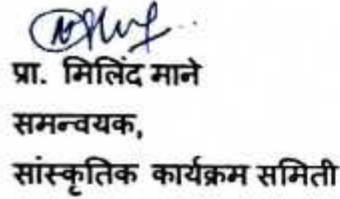 प्रा. मिलिंद माने
समन्वयक,
सांस्कृतिक कार्यक्रम समिती